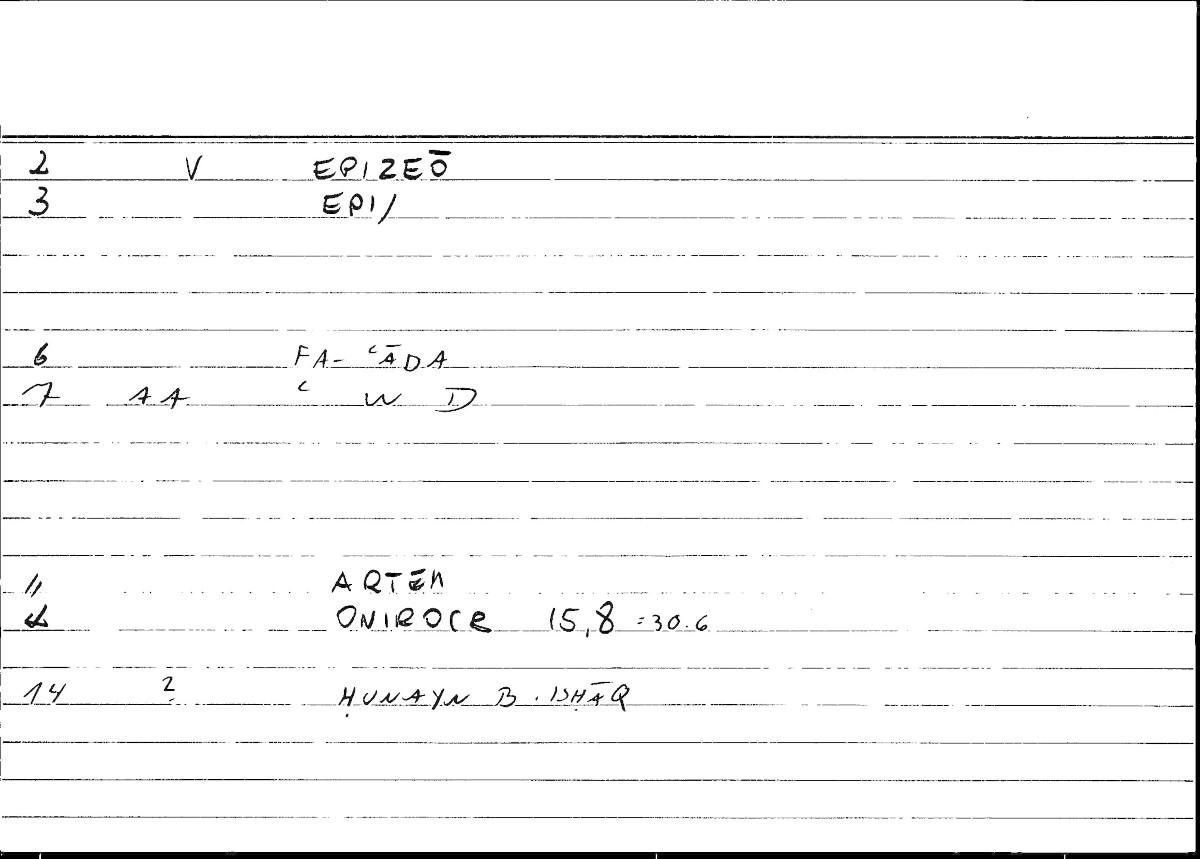 2 V EPIZEŌ
3 EPI/
6 FA- ʿĀDA
7 AA ʿ W D
11 ARTEM
ONIROCR 15,8 = 30.6
14 2 ḤUNAYN B. ISḤĀQ